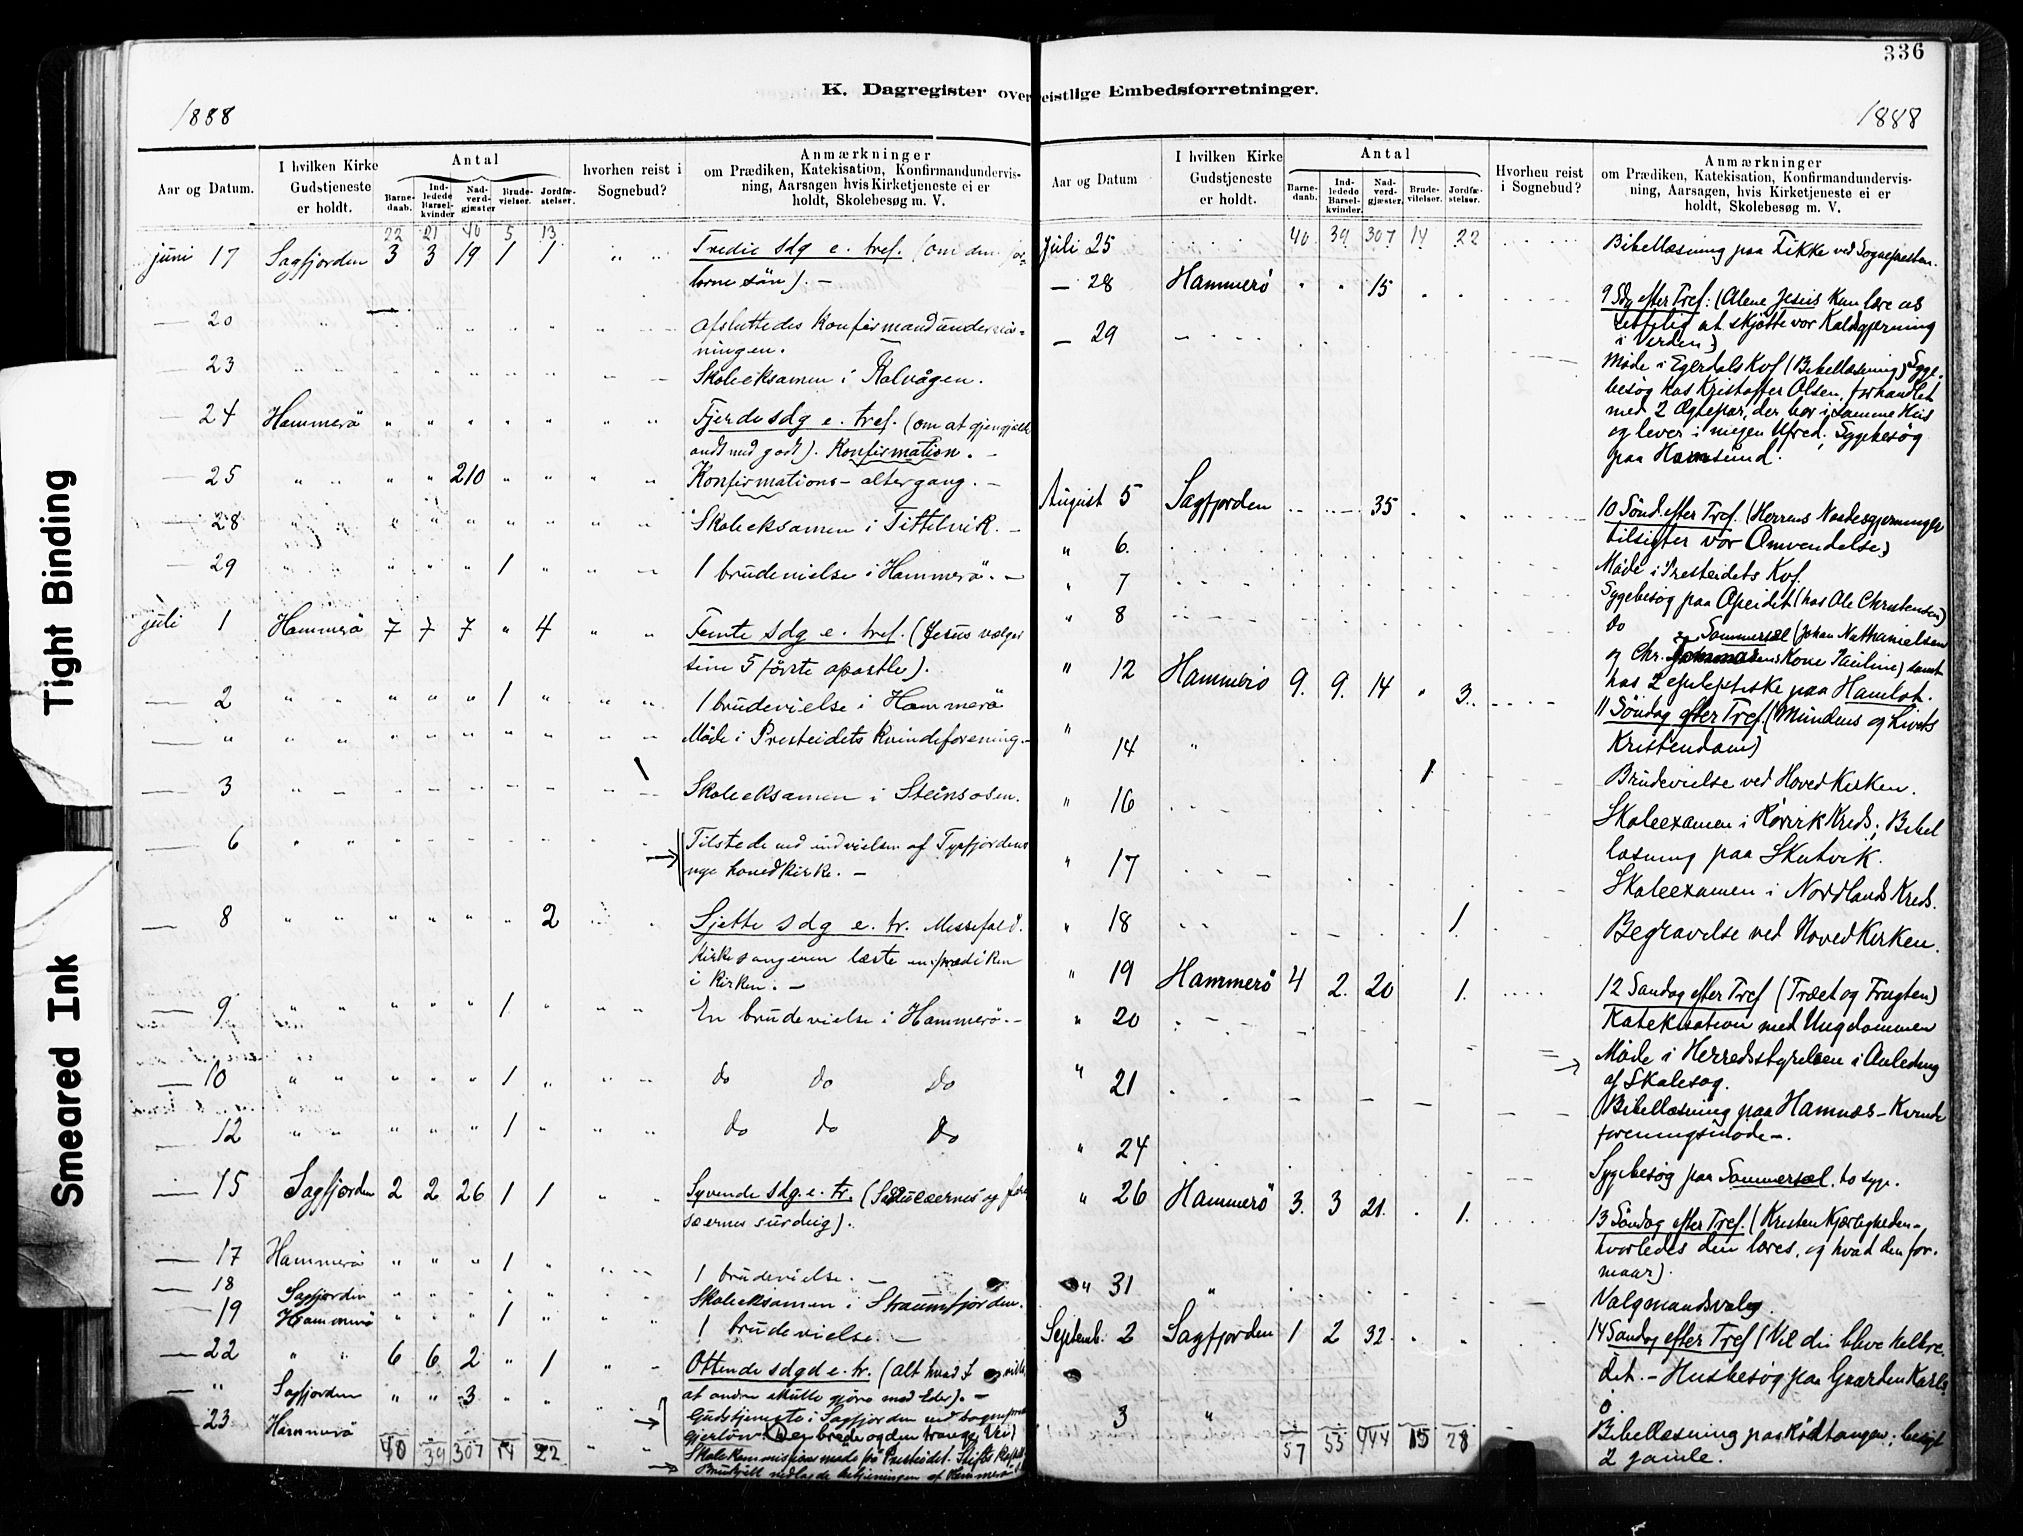 336
K. Dagregister over
eistlige Embedsforretninger.
1888
1888
Aar og Datum.
I hvilken Kirke
Gudstjeneste
er holdt.
Antal
Barne-
daab.
Ind-
ledede
Barsel-
kvinder
Nad-
verd-
gjæster
Brude-
vielser.
Jordfæ-
stelser.
hvorhen reist i
Sognebud?
Anmærkninger
om Prædiken, Katekisation, Konfirmandundervis-
ning, Aarsagen hvis Kirketjeneste ei er
holdt, Skolebesøg m. V.
22 21 40 5 13
juni 17 Sagfjorden 3 3 19 1 1 " " Tredie sdg e. tref. (om den for-
lorne sön). —
— 20 " " afsluttedes Konfirmandundervis-
ningen.
— 23 Skoleeksamen i Kalvågen.
— 24 Hammerö Fjerde sdg e. tref. (om at gjengjælde
ondt med godt). Konfirmation. —
— 25 " " " " 210 " " Konfirmations-altergang. —
— 28 Skoleeksamen i Tittelvik. —
— 29 1 1 brudevielse i Hammerö. —
juli 1 Hammerö 7 7 7 " 4 Femte sdg e. tref. (Jesus vælger
sine 5 förste apostle).
— 2 " " " " " 1 " 1 brudevielse i Hammerö
— " Möde i Presteidets Kvindeforening. —
— 3 Skoleeksamen i Steinsosen.
— 6 Tilstede ved indvielsen af Tysfjordens
nye hovedkirke. —
— 8 " " " " " " 2 Sjette sdg e. tr. Messefald.
Kirkesangeren læste en prædiken
i kirken. —
— 9 " " " " " 1 " En brudevielse i Hammerö. —
— 10 " " " " " 1 " do do do
— 12 " " " " " 1 " do do do
— 15 Sagfjorden 2 2 26 1 1 Syvende sdg. e. tr. (Sadducæernes og fari
sæernes surdeig).
— 17 Hammerö " " " 1 " 1 brudevielse. —
— 18 Sagfjorden Skoleeksamen i Straumfjorden.
— 19 Hammerö " " " 1 " 1 brudevielse. —
— 22 " " 6 6 2 " 1 Ottende sdgd e. tr. (alt hvad I ville
at andre skulle gjöre mod Eder). —
— " Sagfjorden " " 3 " " Gudstjeneste i Sagfjorden ved sogneprest
— 23 Hammerö Gjerlöw (Den brede og den trange Vei)
40 39 307 14 22 Skolekommissionsmöde på Presteidet.
nedlagde betjeningen af Hammerö
Aar og Datum
I hvilken Kirke
Gudstjeneste
er holdt.
Antal
Barne-
daab.
Ind-
ledede
Barsel-
kvinder
Nad-
verd-
gjæster.
Brude-
vilelser.
Jordfæ-
stelser.
Hvorhen reist
i Sognebud?
Anmærkninger
om Prædiken, Katekisation, Konfirmandundervis-
ning, Aarsagen, hvis Kirketjeneste ei er
holdt, Skolebesøg m. V.
Juli 25 40. 39 307 14 22 Bibellæsning paa Fikke ved Sognepresten.
— 28 Hammerö " " 15 9 Sdg efter Tref: (Alene Jesus kan lære os
rettelig at skjøtte vor Kaldsgjerning
i Verden)
— 29 Møde i Egerdals Kvf (Bibellæsning) Syge-
besøg hos Kristoffer Olsen, forhandlet
med 2 Ægtepar, der bor i samme Hus
og lever i megen Ufred; Sygebesøg
paa Hamsund.
August 5 Sagfjorden 35 10 Sönd. efter Tref. (Herrens Naadesgjerninger
tilsigter vor Omvendelse)
" 6. Møde i Presteidets Kvf.
" 7 Sygebesøg paa Opeidet (hos Ole Christensen)
" 8 do Sommersæl (Johan Nathanielsen
og Chr. Kone Pauline) samt
hos 2 epileptiske paa Hamlot.
" 12 Hammerö 9. 9. 14 " 3. 11 Søndag efter Tref. (Mundens og Livets
Kristendom)
" 14 " 1 Brudevielse ved Hovedkirken.
" 16 Skoleexamen i Rørvik Kreds; Bibel
læsning paa Skutvik.
" 17 Skoleexamen i Nordlands Kreds.
" 18 1. Begravelse ved Hovedkirken.
" 19 Hammerö 4 2. 20 1. 12 Søndag efter Tref (Træet og Frugten)
Katekisation med Ungdommen
" 20 Møde i Herredsstyrelsen i Anledning
af Skolesag.
" 21 Bibellæsning paa Hamnæs - Kvinde
foreningsmøde -.
" 24 Sygebesøg paa Sommersæl, to syge.
" 26 Hammerö 3. 3 21. 1. 13 Søndag efter Tref. (Kristen Kjærligheden -
hvorledes den læres, og hvad den for-
maar).
" 31 " Valgmandsvalg.
Septemb. 2 Sagfjorden 1 2 32. " " 14 Søndag efter Tref (Vil du blive helbre-
det. - Husbesøg paa Gaarden Karls
ö.
3 " Bibellæsning paa Rødtangen; besøgt
2 gamle.
57 53 444 15 28
Tight Binding
Smeared Ink